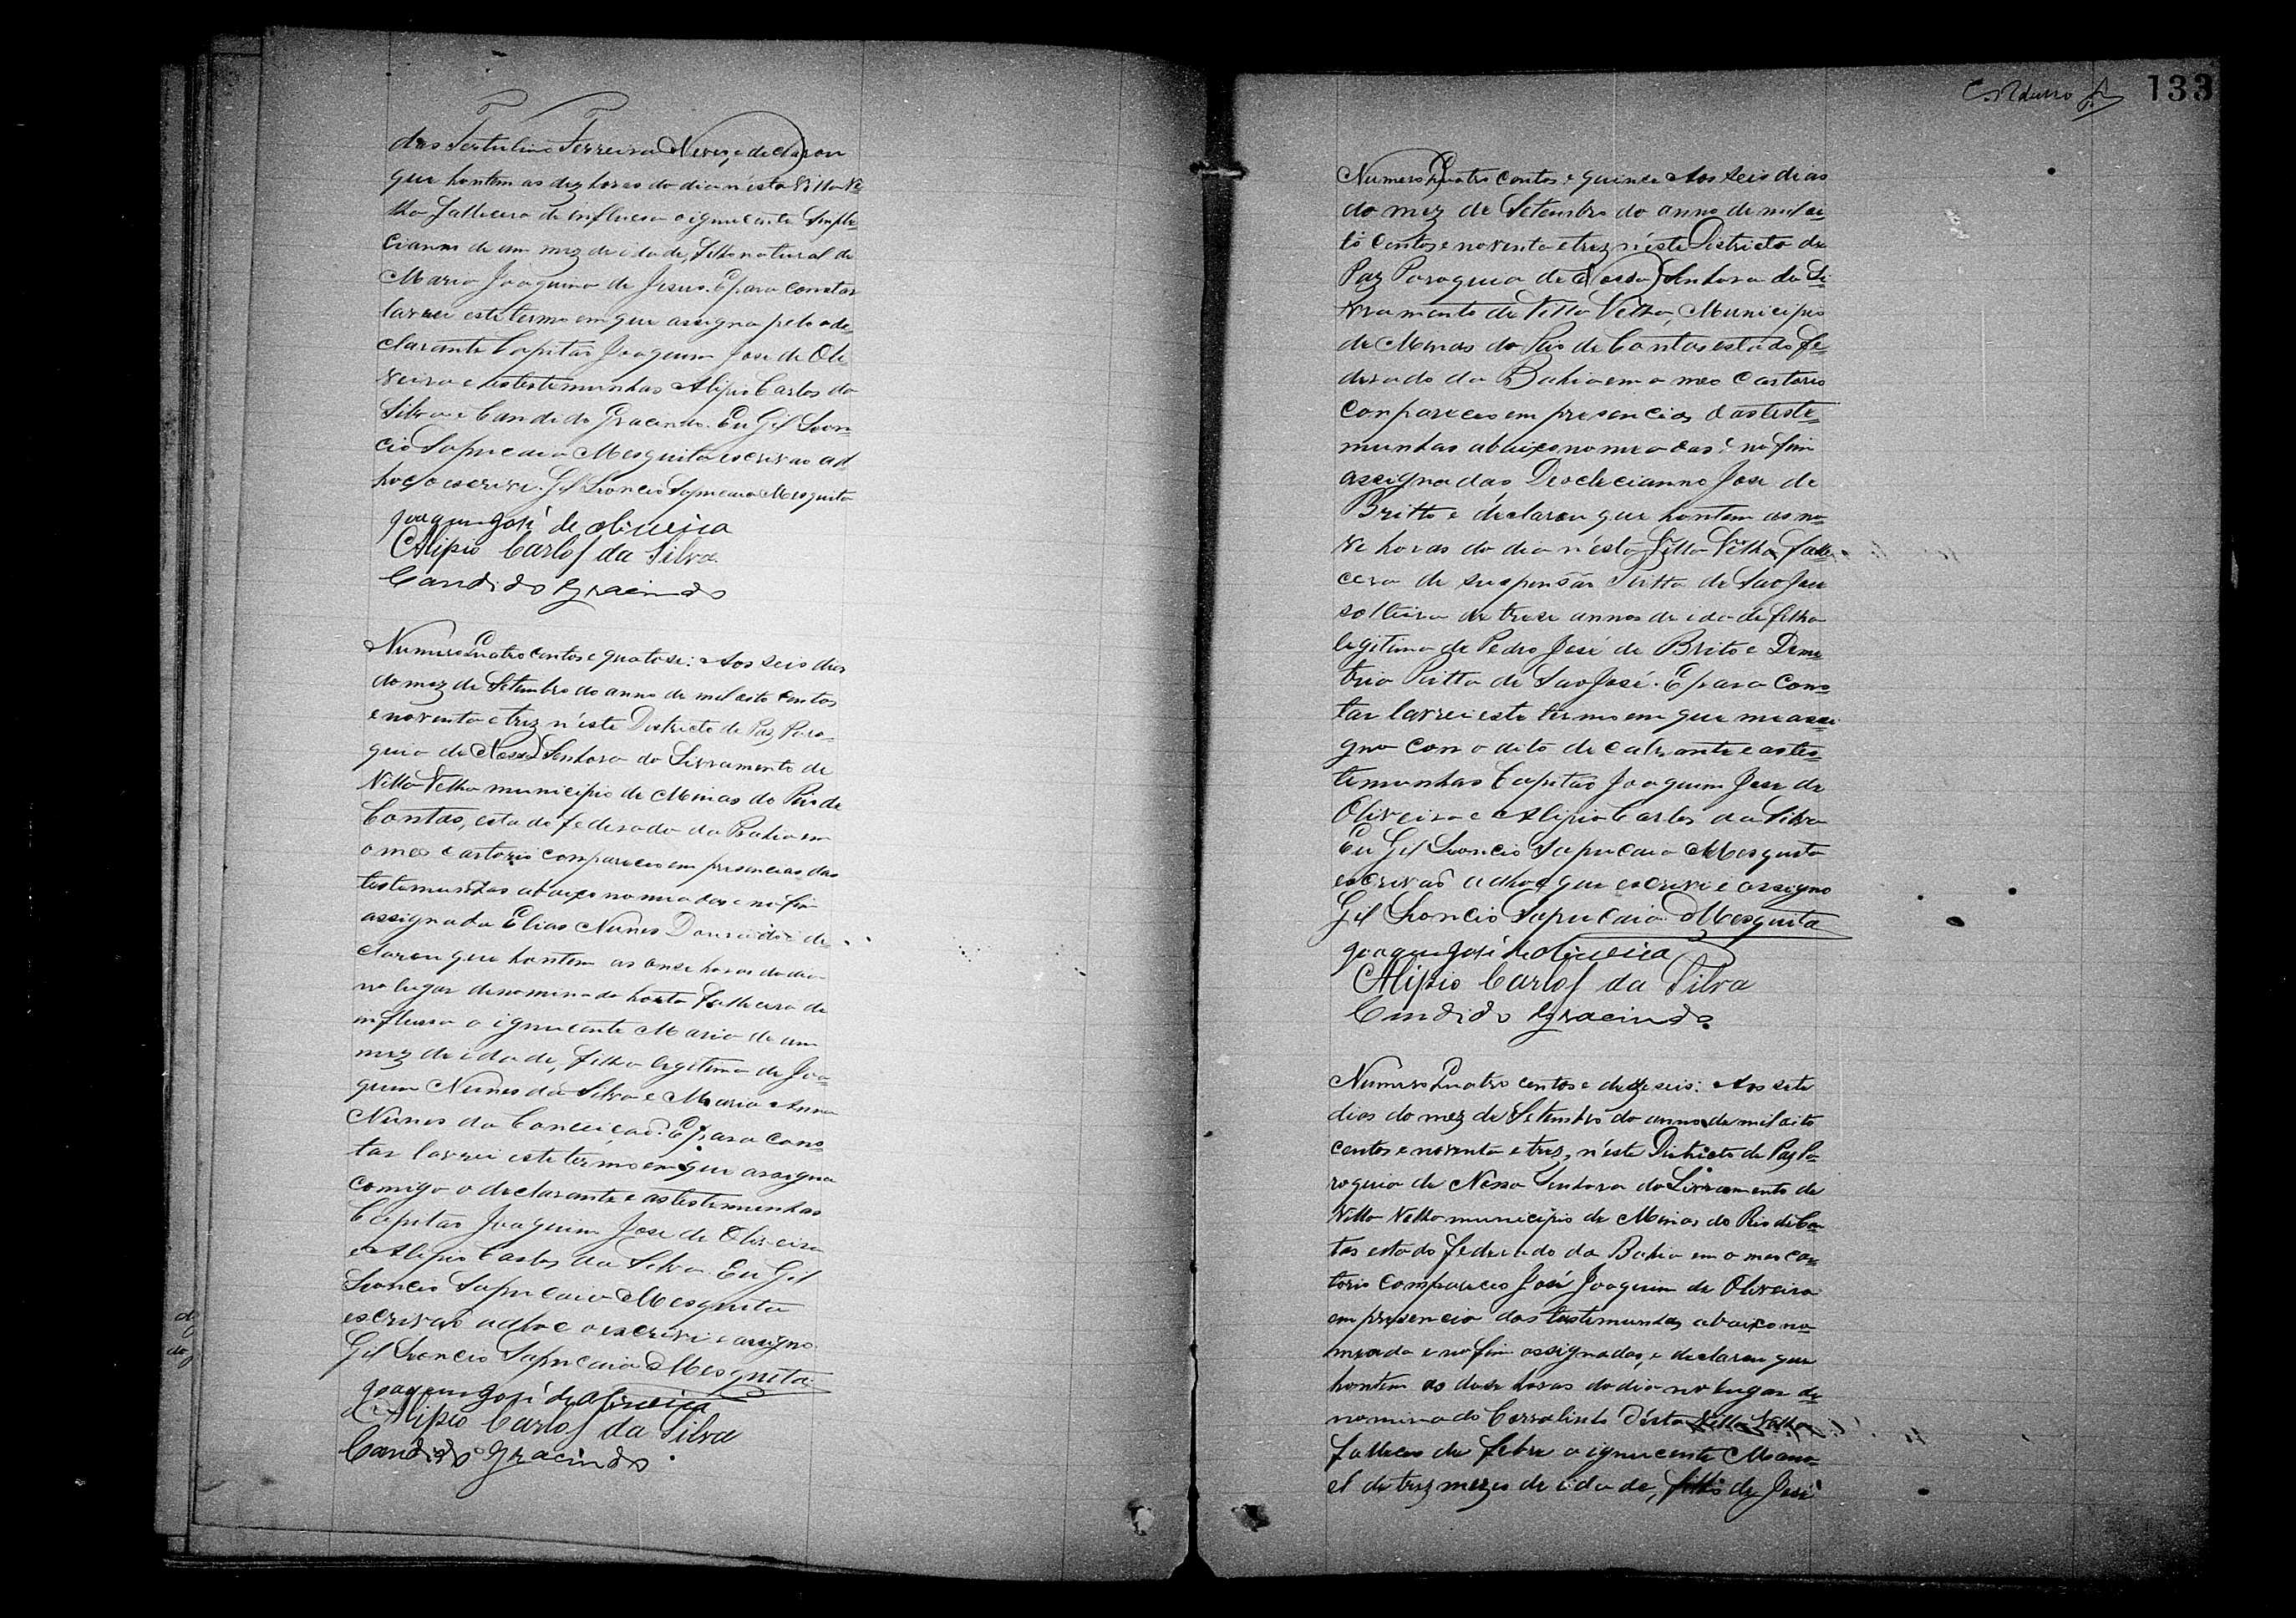 das Tertulino Ferreira Neves, e declarou
que hontem as dez horas do dia n'esta Villa Ve-
lha fallecera de influensa o ignucente Simpli-
cianno de um mez de idade, filho natural de
Maria Joaquina de Jesus. E para constar
larvei este termo em que assigna pelo o de-
clarante Capitão Joaquim Jose de Oli-
veira e as testemunhas Alipio Carlos da
Silva e Candido Gracindo. Eu Gil Leon-
cio Sapucaia Mesquita escrivão ad
hoc, o escrivi. Gil Leoncio Sapucaia Mesquita
Joaquim José de Oliveira
Alipio Carlos da Silva
Candido Gracindo
Numero Quatro centos e quatose: Aos seis dias
do mez de Setembro do anno de mil oito centos
e noventa e trez n'este Districto de Paz Paro-
quia de Nossa Senhora do Livramento de
Villa Velha municipio de Minas do Rio de
Contas, estado federado da Bahia em
o meo cartorio compareceo em presencias das
testemunhas abaixo nomeadas e no fim
assignada Elias Nunes Dourado e de-
clarou que hontem as onse horas do dia
no lugar denominado horta fallecera de
influensa a ignucente Maria de um
mez de idade, filha legitima de Joa-
quim Nunes da Silva e Maria Anna
Nunes da Conceição. E para cons-
tar larvei este termo em que assigna
comigo o declarante e as testemunhas
Capitão Joaquim Jose de Oliveira
e Alipio Carlos da Silva. Eu Gil
Leoncio Sapucaia Mesquita
escrivão adhoc o escrivi e assigno
Gil Leoncio Sapucaia Mesquita
Joaquim José de Oliveira
Alipio Carlos da Silva
Candido Gracindo
133
Numero Quatro centos e quinse Aos seis dias
do mêz de Setembro do anno de mil oi-
to centos e noventa e trez n'este Districto de
Paz Paroquia de Nossa Senhora do Li-
vramento de Villa Velha, Municipio
de Minas do Rio de Contas estado fe-
derado da Bahia em o meo cartorio
compareceo em presencias das teste-
munhas abaixo nomeadas e no fim
assignadas Deoclecianno Jose de
Britto e declarou que hontem as no-
ve horas do dia n'esta Villa Velha falle-
cera de suspensão Ritta de São Jose
solteira de trese annos de idade filha
legitima de Pedro José de Brito e Deme-
tria Ritta de São José. E para cons-
tar larvei este termo em que me assi-
gno com o dito declarante e as tes-
temunhas Capitão Joaquim Jose de
Oliveira e Alipio Carlos da Silva
Eu Gil Leoncio Sapucaia Mesquita
escrivão adhoc que escrivi e assigno
Gil Leoncio Sapucaia Mesquita
Joaquim José de Oliveira
Alipio Carlos da Silva
Candido Gracindo
Numero Quatro centos e dezeseis: Aos sete
dias do mez de Setembro do anno de mil oito
centos e noventa e tres, n'este Districto de Paz Pa-
roquia de Nossa Senhora do Livramento de
Villa Velha municipio de Minas do Rio de Con-
tas estado federado da Bahia em o meo car-
torio compareceo José Joaquim de Oliveira
em presencia das testemunhas abaixo no-
meada e no fim assignadas, e declarou que
hontem as dose horas do dia no lugar de-
nominado Corralinho desta Villa Velha
falleceo de febre o ignucente Mano-
el de trez mezes de idade, filho de José